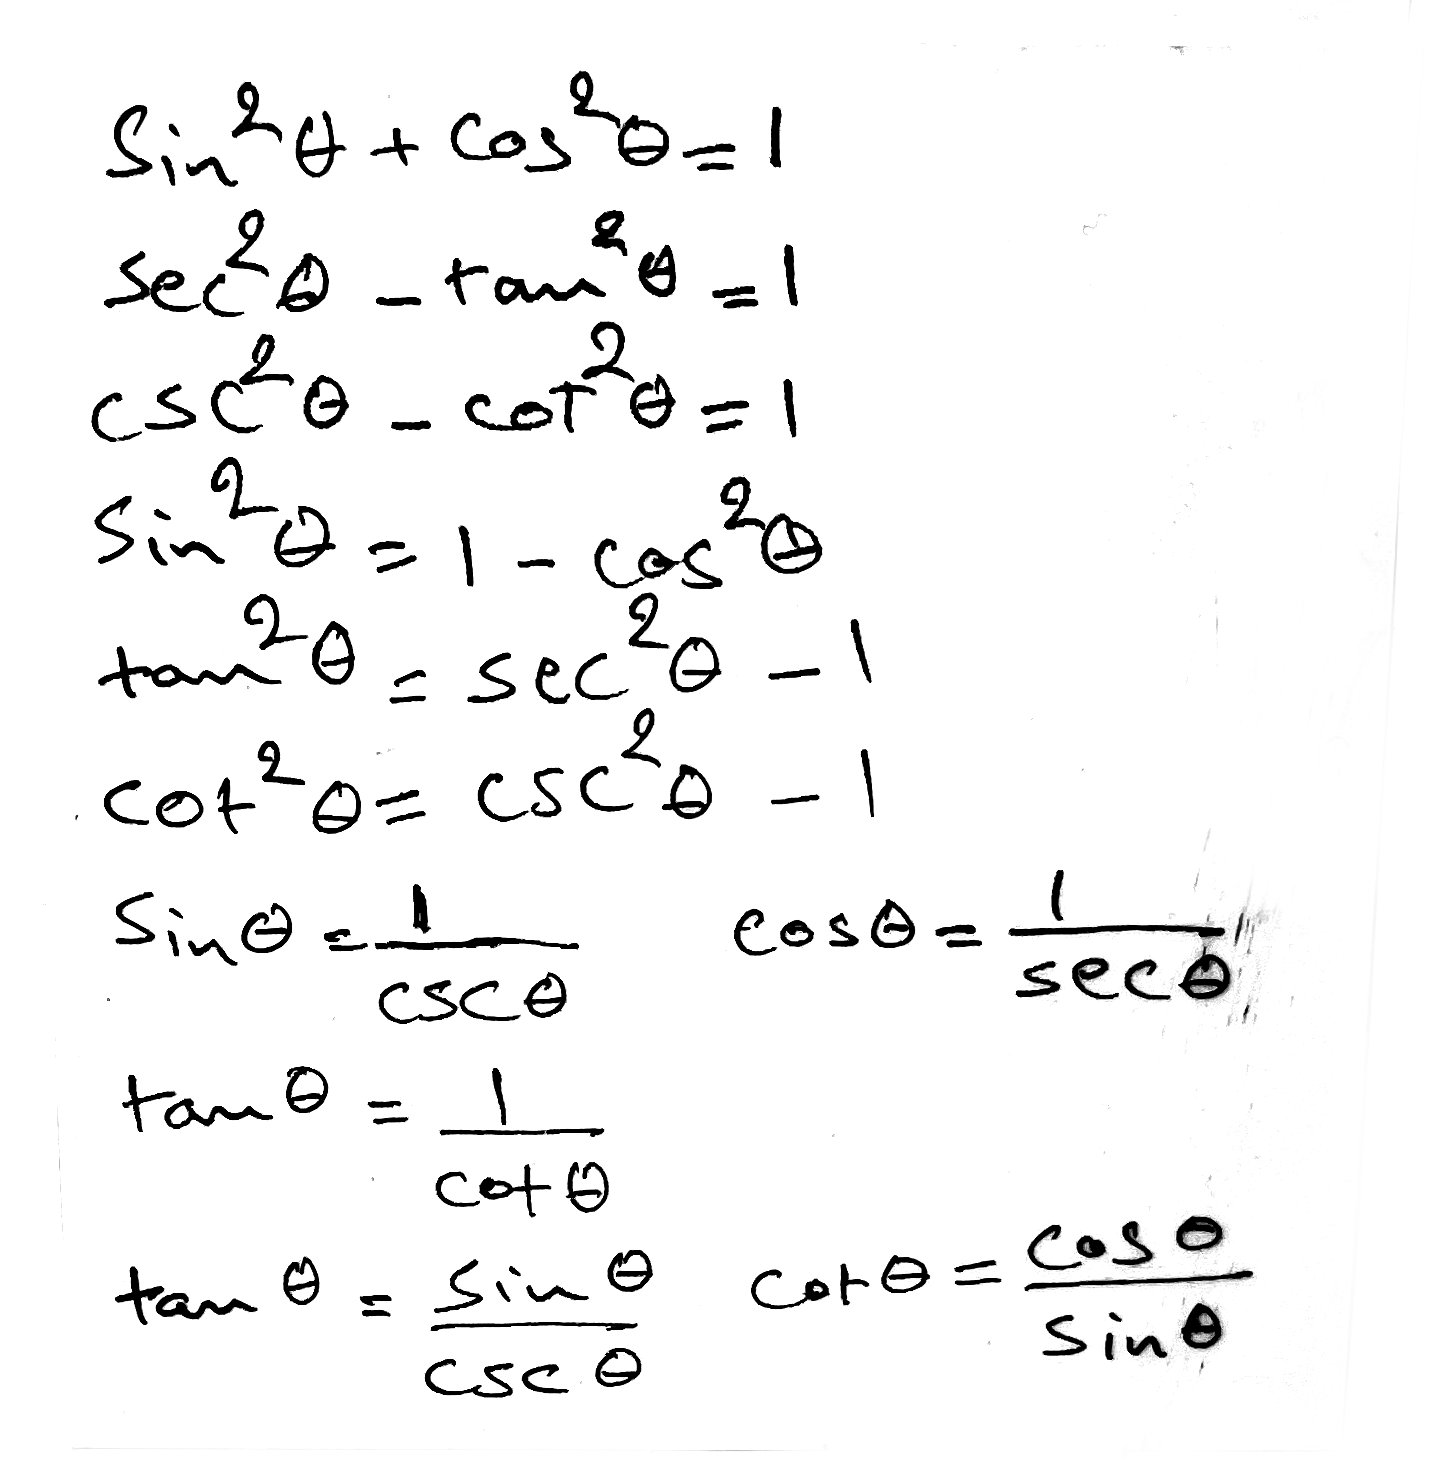 sin²θ + cos²θ = 1
sec²θ - tan²θ = 1
csc²θ - cot²θ = 1
sin²θ = 1 - cos²θ
tan²θ = sec²θ - 1
cot²θ = csc²θ - 1
sinθ = 1/cscθ    cosθ = 1/secθ
tanθ = 1/cotθ
tanθ = sinθ/cscθ    cotθ = cosθ/sinθ